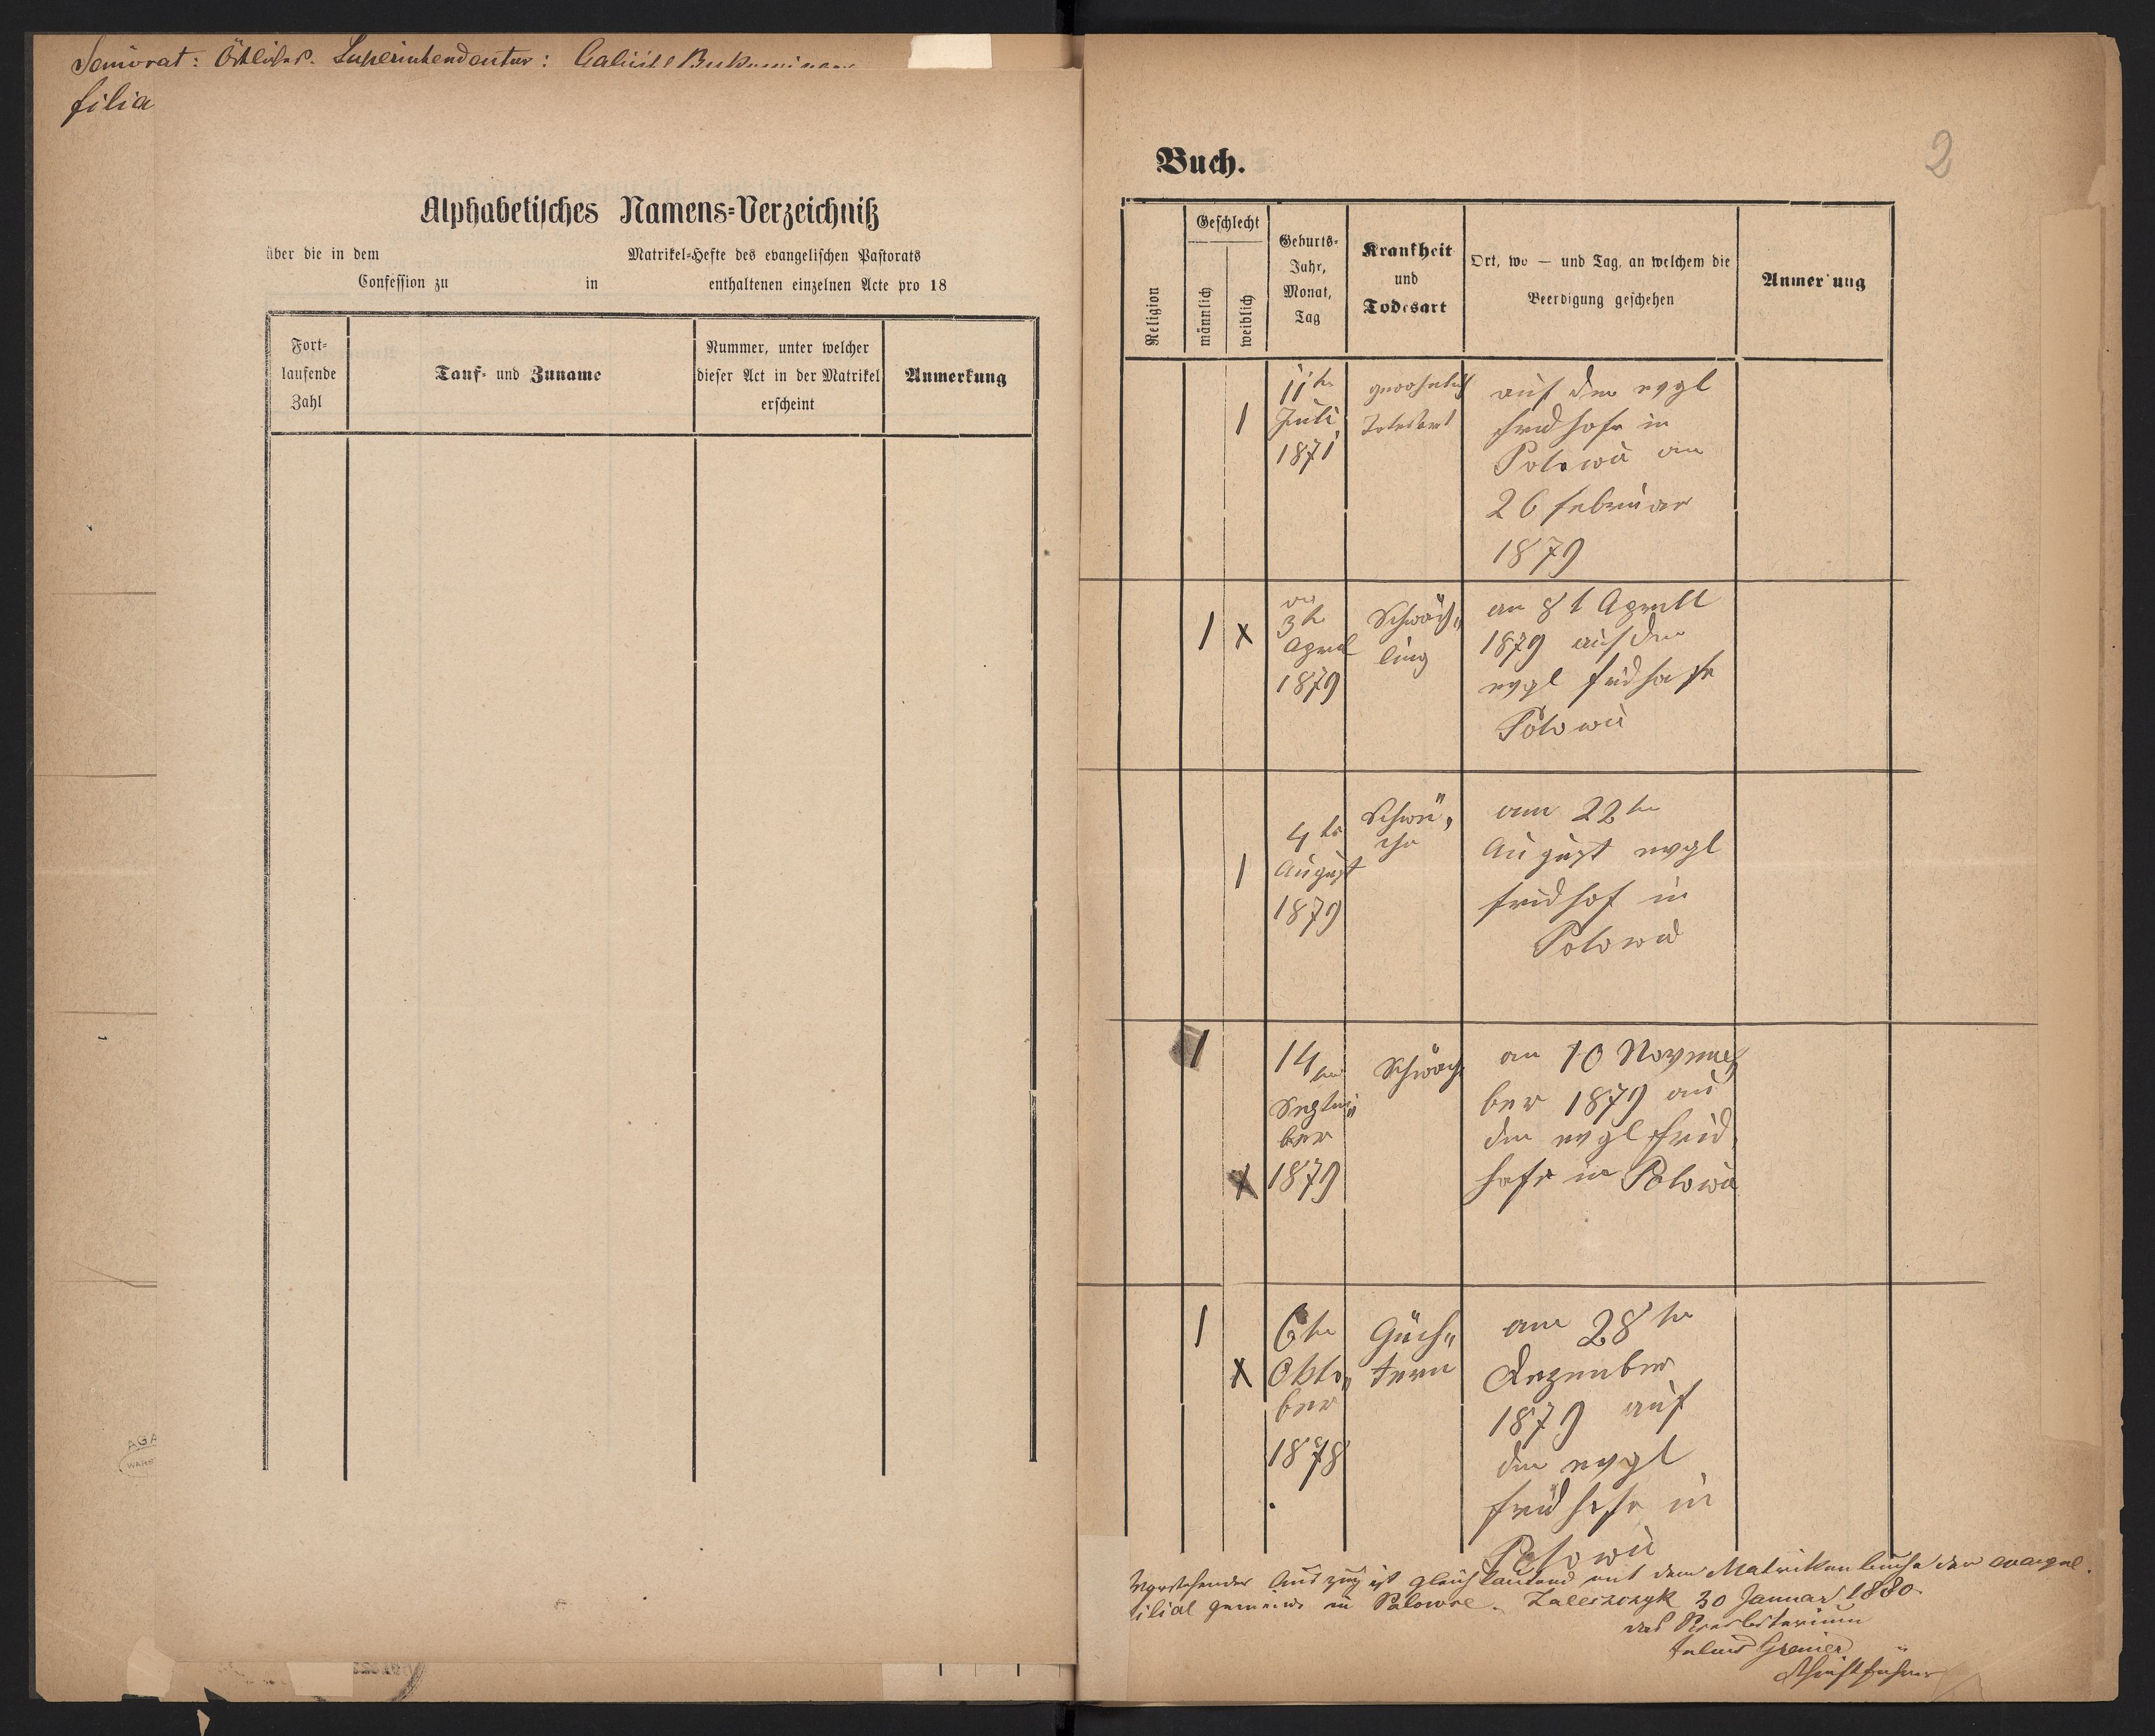 Seniorat: Östliches. Superintendentur:
filia
Alphabetisches Namens-Verzeichniß
über die in dem Matrikel-Hefte des evangelischen Pastorats
Confession zu in enthaltenen einzelnen Acte pro 18
Fort-
laufende
Zahl
Tauf- und Zuname
Nummer, unter welcher
dieser Act in der Matrikel
erscheint
Anmerkung
AGA
2
Buch.
Religion
Geschlecht
männlich
weiblich
Geburts-
Jahr,
Monat,
Tag
Krankheit
und
Todesart
Ort, wo — und Tag, an welchem die
Beerdigung geschehen
Anmer ung
1
11te
Juli
1871
auf dem evgl
fridhofe in
Polowce am
26 februar
1879
1 x
3te
April
1879
Schwäch„
ling
am 8t Aprill
1879 auf dem
evgl fridhofe
Polowce
1
4te
August
1879
Schwä„
che
am 22te
August evgl
fridhof in
Polowce
1
x
14te
Septem„
ber
1879
Schwäche
am 10 Novem
ber 1879 auf
dem evgl frid
hofe in Polowce
1
x
6te
Okto„
ber
1878
am 28te
Dezember
1879 auf
dem evgl
fridhofe in
Polowce
Vorstehender Auszug ist gleichlautend mit dem Matrikenbuche der evangel.
filial gemeinde in Polowce. Zaleszczyk 30 Januar 1880
das Presbiterium
Schriftführer